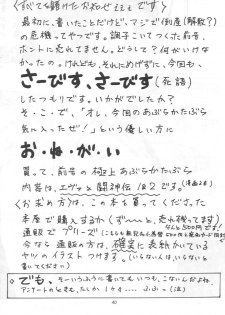 〈すべてを賭けたお知らせ です〉
最初に、書いたことだけど、マジで倒産(解散?)
の危機ってやつです。調子こいてつくった前号、
ホントに売れてません。どうして?何がいけな
かったの。けれども、それにめげずに、今回も、
さーびす、さーびす (死語)
したつもりです。いかがでしたか?
そ・こ・で、「オレ、今回のあぶらかたぶら
気に入ったぜ!」という優しい方に
お・ね・が・い
買って、前号の極上あぶらかたぶら
内容は、エヴァと闘神伝1&2です。(漫画28)
〈お求め方〉は、この本を買ってくださった
本屋で購入するか(ず〜〜と、売れ残ってます)
通販でプリーズ(
今なら通販の方は、確実に表効かいている
ヤツのイラストつけます。(いらない人は、いらないと
書いてください)
◇でも、そーいうふうに書いても いつも、こないんだよね。
アンケートのときも、たしか1ケ… ふふっ(泣)
40